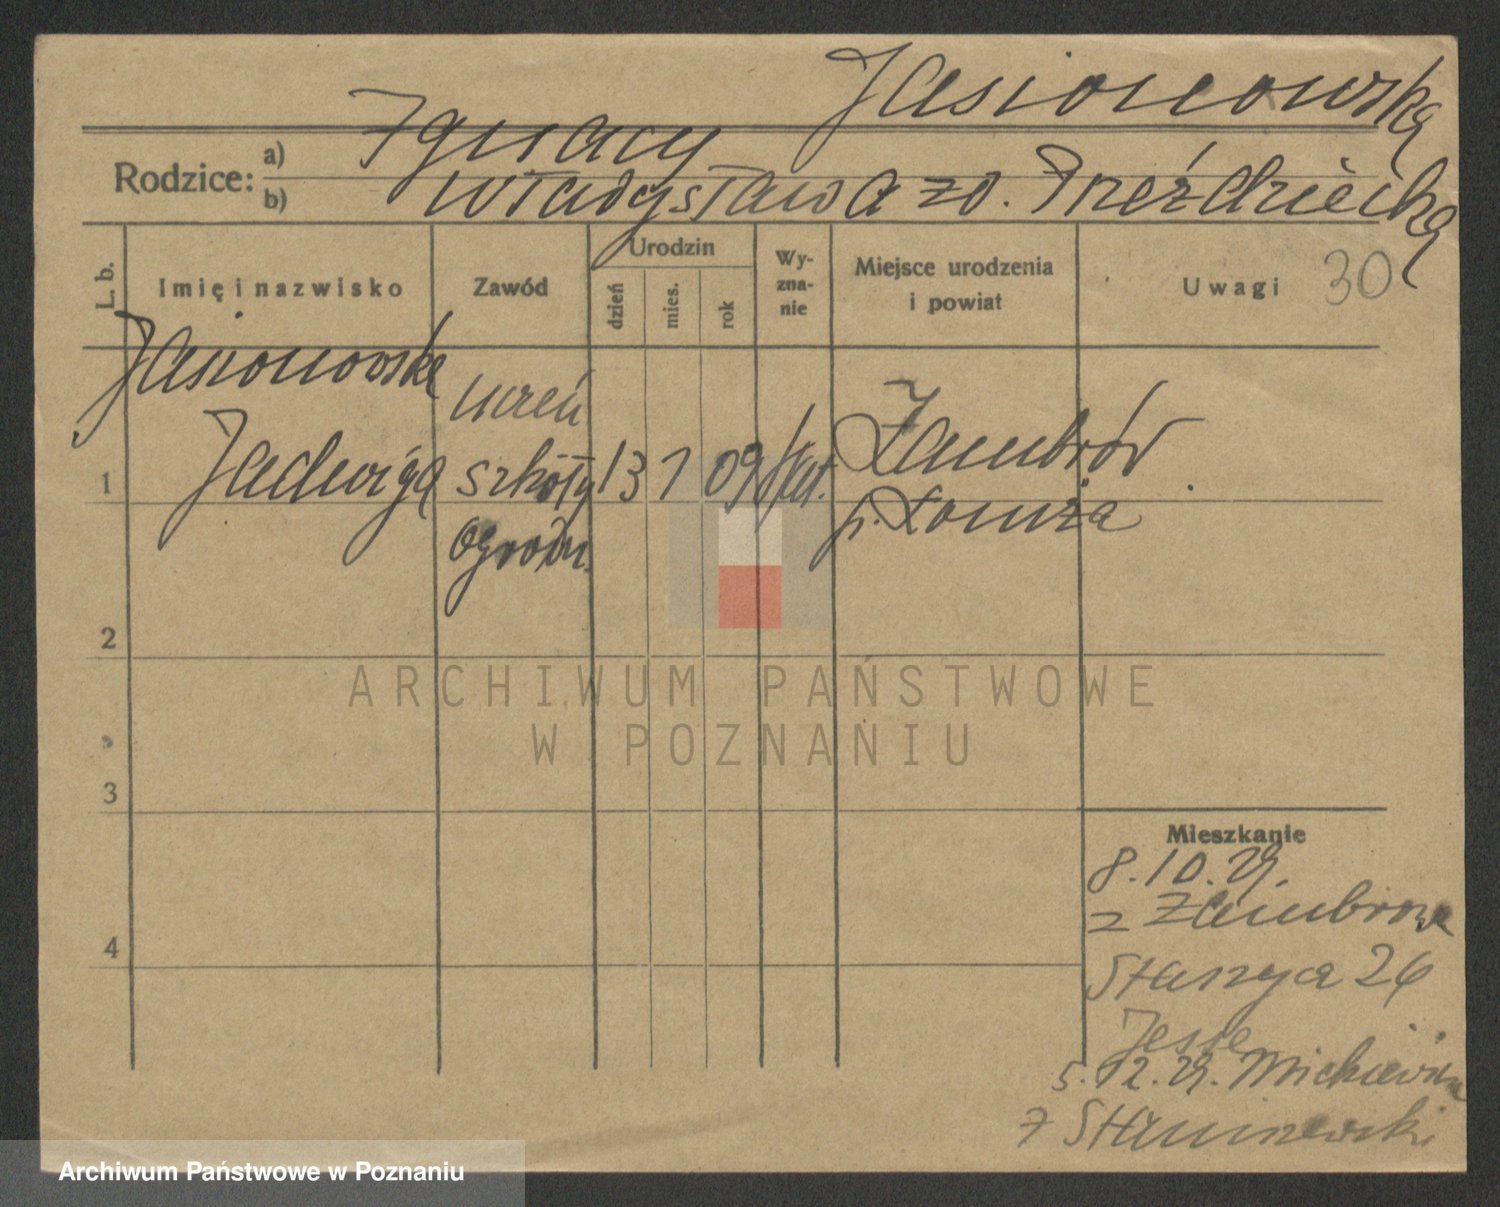 Jasionowska
Rodzice: a) Ignacy
b) Władysława zd. Przeździecka
L. b.
Imię i nazwisko
Zawód
Urodzin
dzień
mies.
rok
Wy-
zna-
nie
Miejsce urodzenia
i powiat
Uwagi 30
1
Jasionowska
Jadwiga
uczeń
szkoły
ogrodn.
13 1 09 kat.
Zambrów
p. Łomża
2
3
4
Mieszkanie
8.10.29.
z Zambrowa
Staszyca 26
Jeske
5.12.29. Mickiewicza
7 Staniszewski
ARCHIWUM PAŃSTWOWE
W POZNANIU
Archiwum Państwowe w Poznaniu